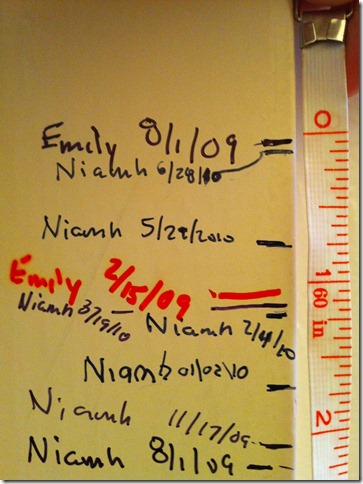 Emily 8/1/09
Niamh 6/28/10
Niamh 5/29/2010
Emily 2/15/09
Niamh 3/19/10
Niamh 2/14/10
Niamh 01/02/10
Niamh 11/17/09
Niamh 8/1/09
0
1
60 in
2